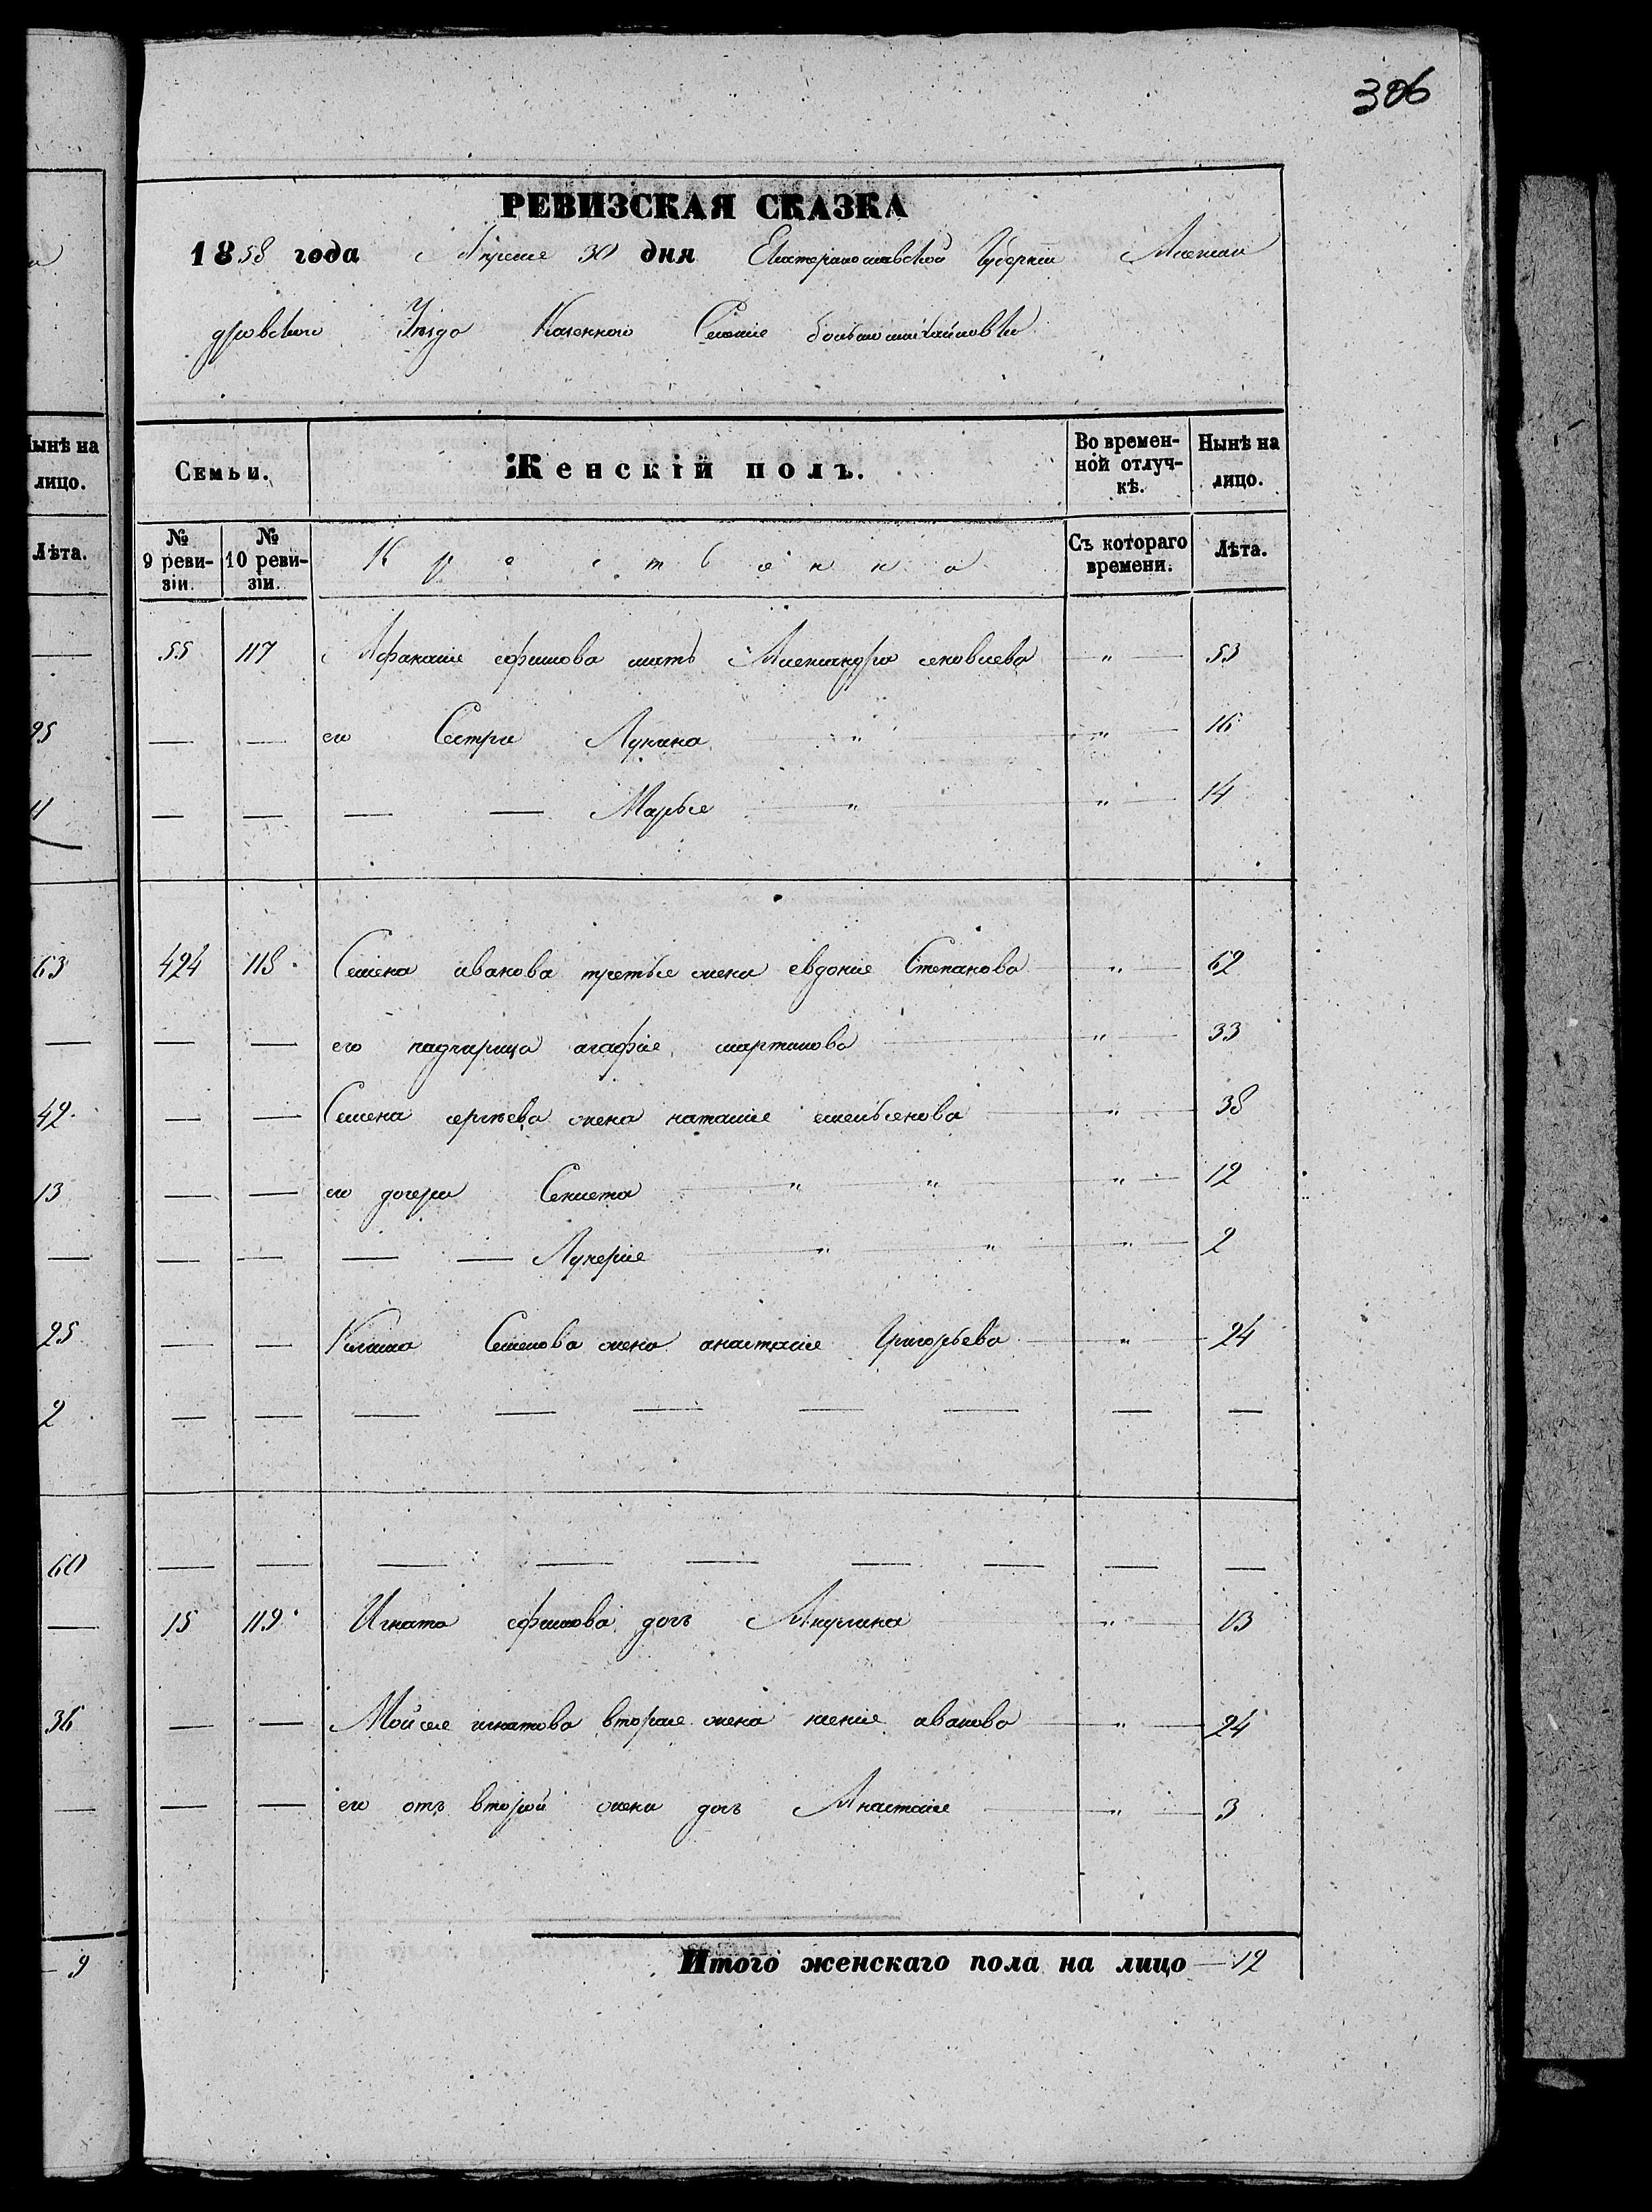 306
РЕВИЗСКАЯ СКАЗКА
1858 года Апреля 30 дня Екатеринославской Губернии Алексан
дровского Уѣзда Казенного Селенія большомихайловки
Семьи. Женскій полъ. Во временной отлучкѣ. Нынѣ на лицо.
№ 9 ревизіи. № 10 ревизіи. Крестьянка Съ котораго времени. Лѣта.
55 117 Афанасія ефимова мать Александра яковлева " 53
— — его Сестры Лукина " " 16
— — — — Марья " " 14
424 118 Семена иванова третья жена евдокія Степанова " 62
— — его падчирица агафія мартинова " 33
— — Семена сергѣева жена наталія емельянова " 38
— — его дочери " " " 12
— — — — Лукерія " " " 2
— — Семенова жена анастасія Григорьева " 24
— — — — — — — — —
— — — — — — — — —
15 119 Игната ефимова дочь Акулина " 13
— — Мойсея игнатова вторая жена ксенія иванова " 24
— — его отъ второй жены дочь Анастасія " 3
Итого женскаго пола на лицо — 12
Нынѣ на лицо.
Лѣта.
—
25
11
63
—
42
13
—
25
2
60
—
36
—
9